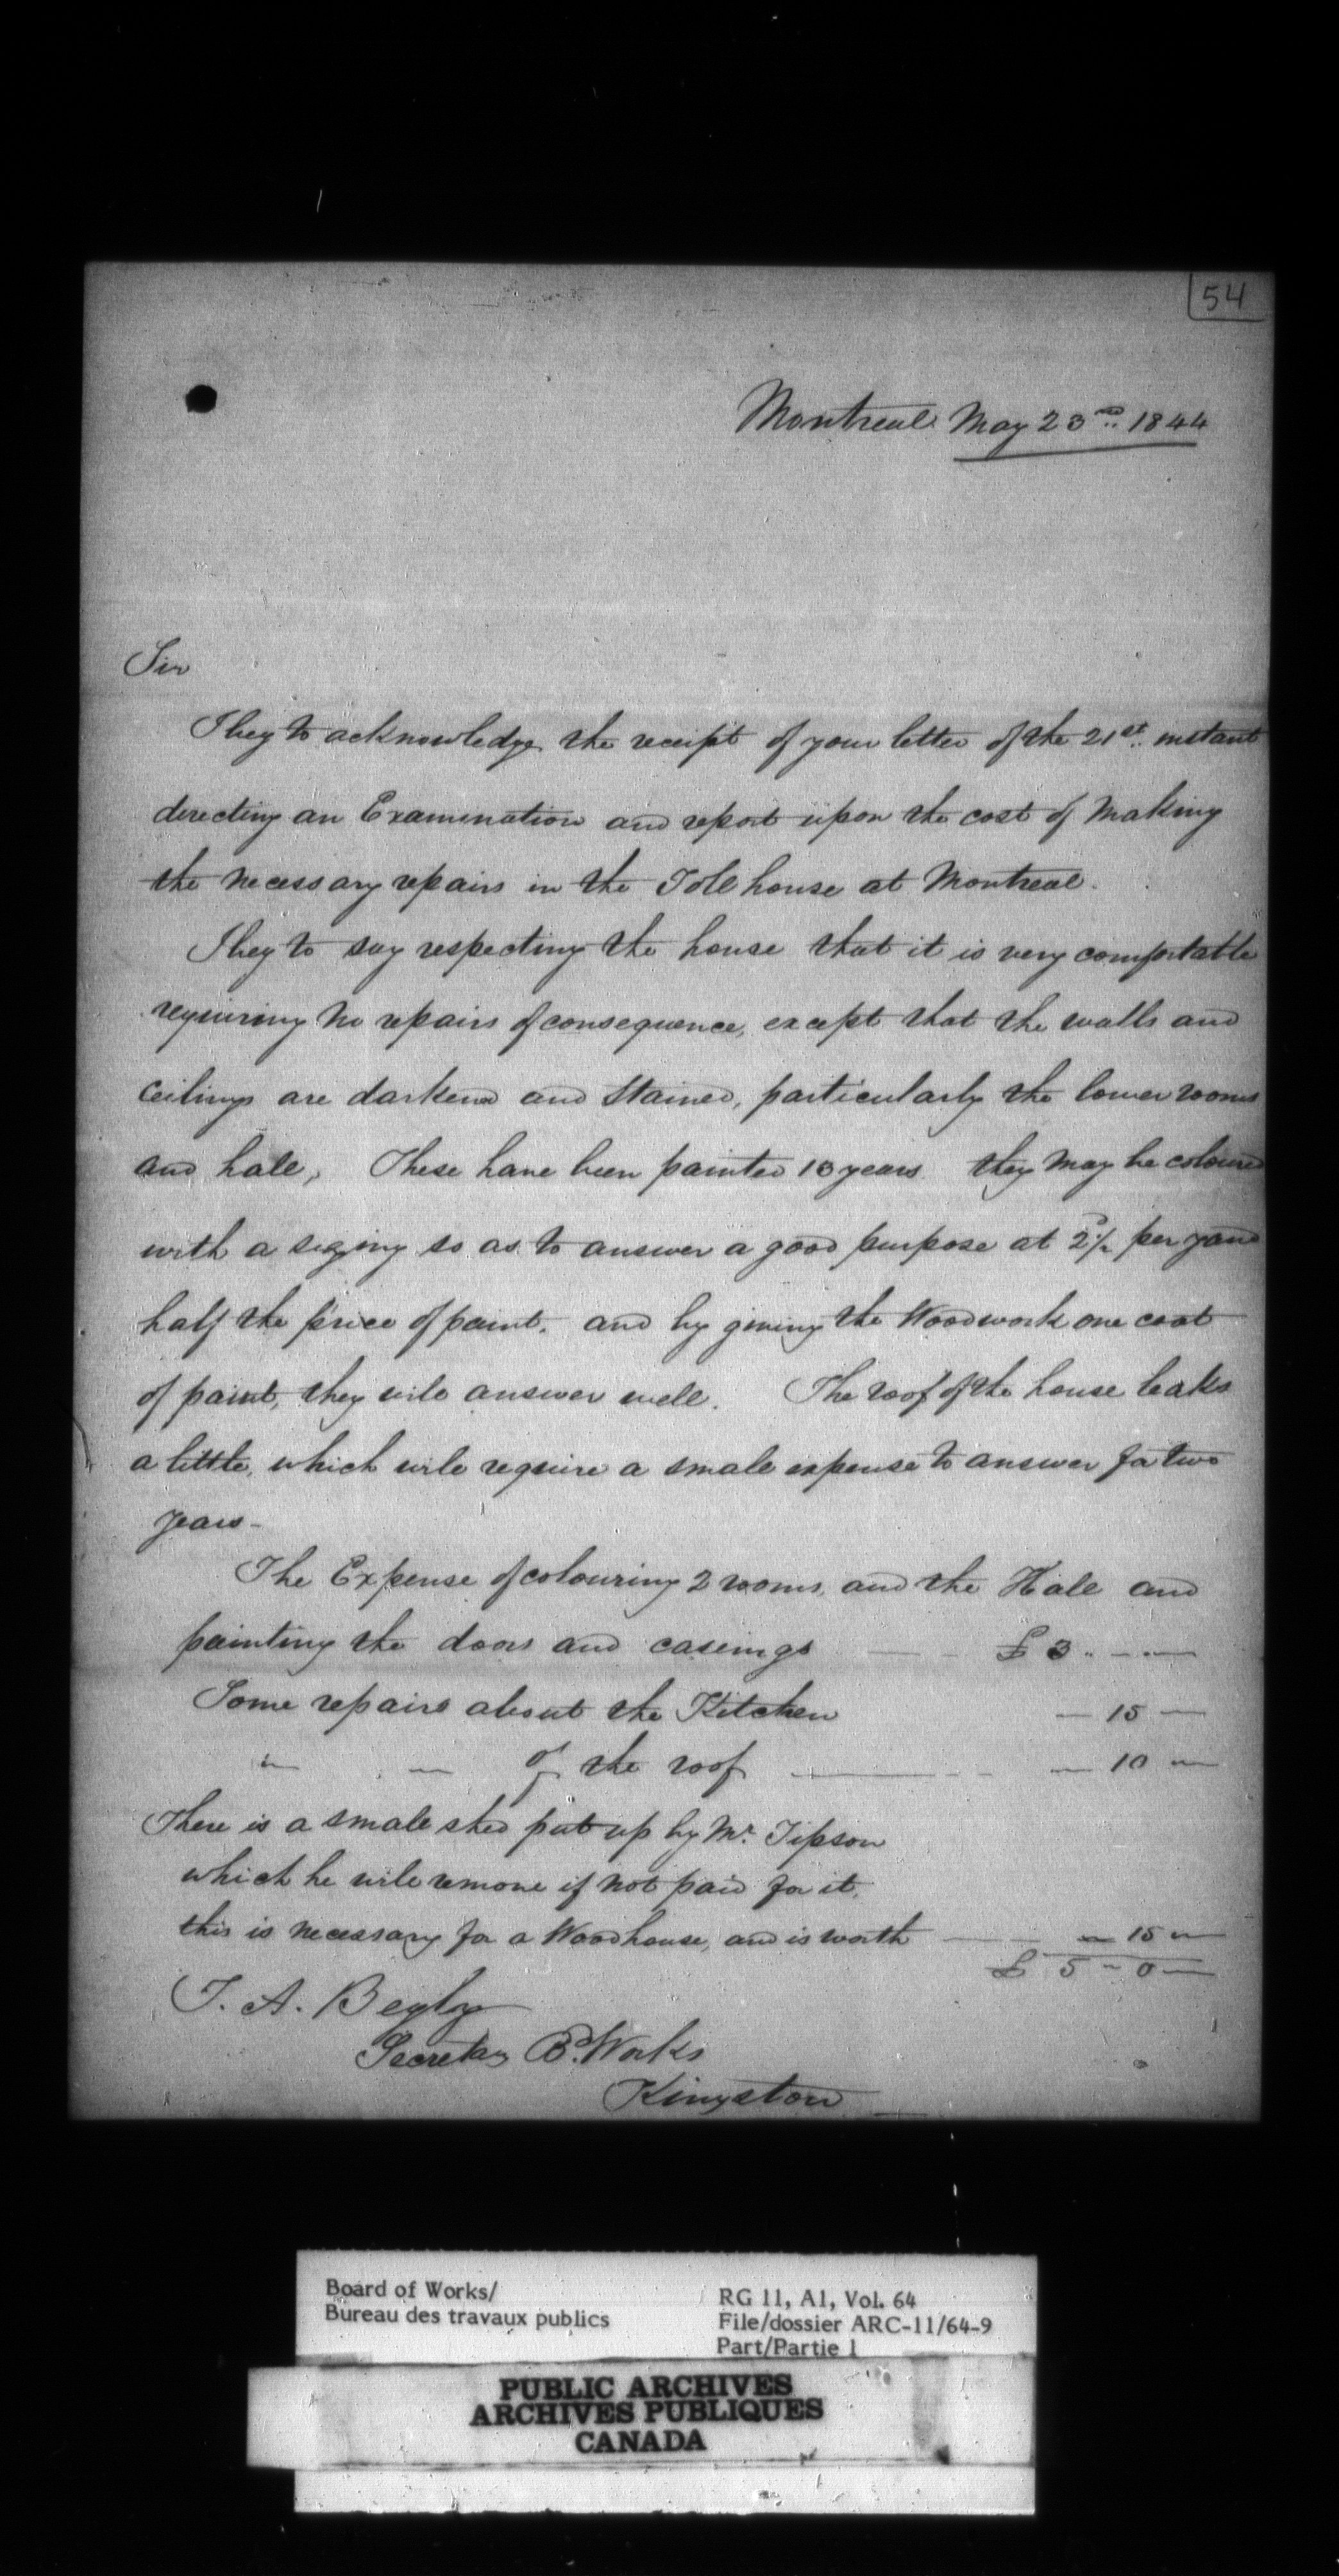 54
Montreal May 23rd 1844
Sir
I beg to acknowledge the receipt of your letter of the 21st instant
directing an Examination and report upon the cost of making
the necessary repairs in the Toll house at Montreal.
I beg to say respecting the house that it is very comfortable
requiring no repairs of consequence, except that the walls and
ceilings are darkend and stained, particularly the lower rooms
and hall, These have been painted 13 years they may be coloured
with a so as to answer a good purpose at 2½ per yard
half the price of paint. and by giving the Woodwork one coat
of paint, they will answer well. The roof of the house leaks
a little, which will require a small expense to answer for two
years -
The Expense of colouring 2 rooms, and the Hall and
painting the doors and casings £ 3 " - " -
Some repairs about the Kitchen - 15 -
" - of the roof - 10 -
There is a small shed put up by Mr. Tipson
which he will remove if not paid for it,
this is necessary for a Woodhouse, and is worth - 15 -
£ 5 - 0 -
T. A. Begly
Secretary B. Works
Kingston
Board of Works/
Bureau des travaux publics
RG 11, A1, Vol. 64
File/dossier ARC-11/64-9
Part/Partie 1
PUBLIC ARCHIVES
ARCHIVES PUBLIQUES
CANADA